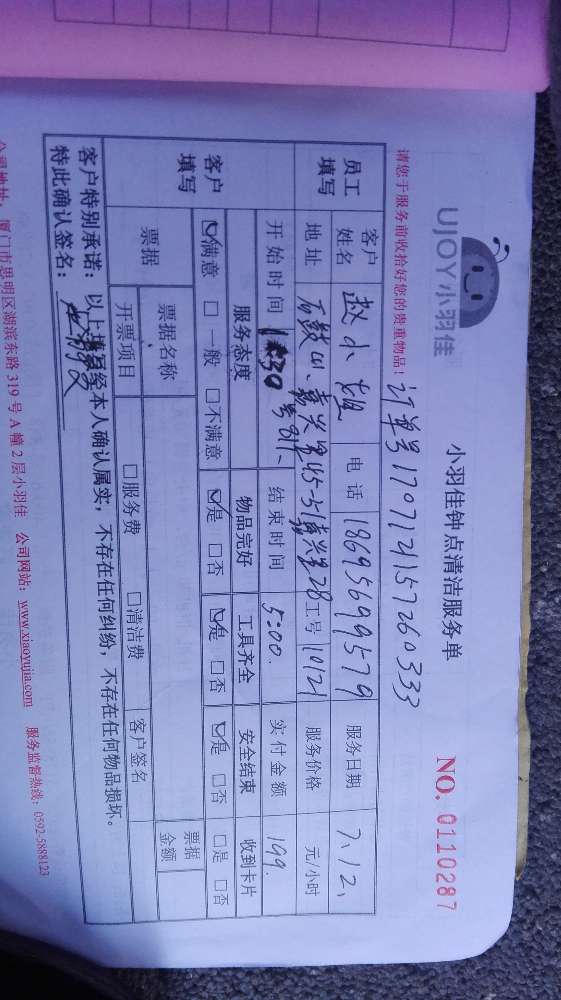 UJOY小羽佳
小羽佳钟点清洁服务单
请您于服务前收拾好您的贵重物品!
订单号170712157260333
NO. 0110287
员工填写
客户姓名 赵小姐 电话 18695699579 服务日期 7.12、
地址 工号 10121 服务价格 元/小时
开始时间 结束时间 5:00. 实付金额 199.
客户填写
服务态度 物品完好 工具齐全 安全结束 收到卡片
☑满意 □一般 □不满意 ☑是 □否 ☑是 □否 ☑是 □否 □是 □否
票据 票据名称 票据金额
开票项目 □服务费 □清洁费 客户签名
客户特别承诺:以上填写经本人确认属实,不存在任何纠纷,不存在任何物品损坏。
特此确认签名:
公司地址:厦门市思明区湖滨东路 319 号 A 幢 2 层小羽佳 公司网站:www.xiaoyujia.com 服务监督热线:0592-5888123